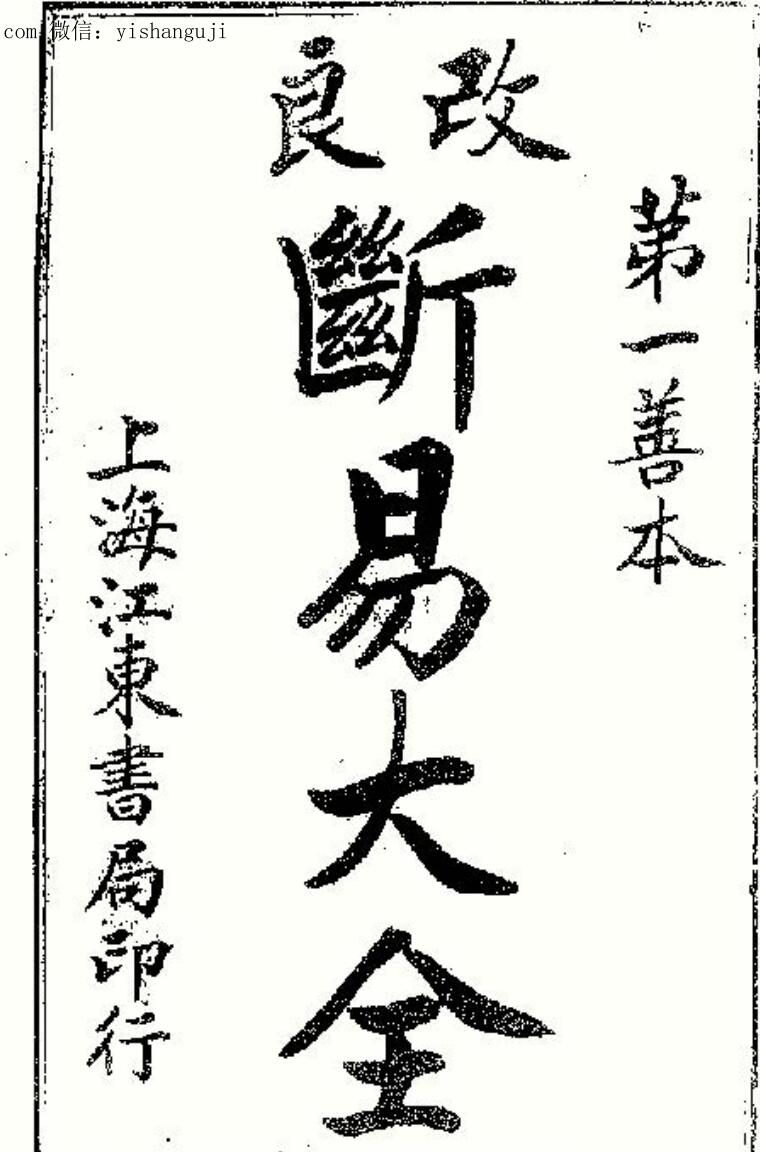 com 微信：yishanguji
第一善本
改良
斷易大全
上海江東書局印行